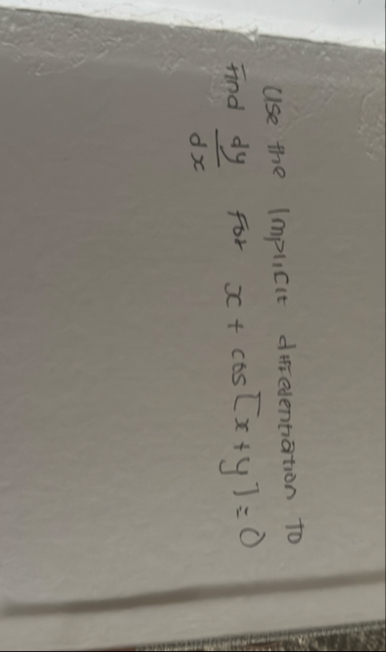 Use the Implicit differentiation to
find dy/dx for x + cos[x+y] = 0